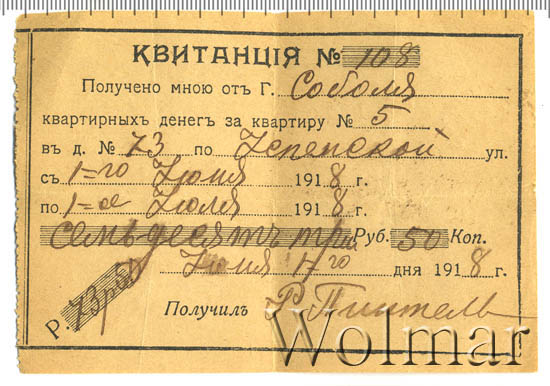 КВИТАНЦІЯ № 108
Получено мною отъ Г. Соболя
квартирныхъ денегъ за квартиру № 5
въ д. № 73 по Успенской ул.
съ 1=го Іюня 1918 г.
по 1=ое Іюля 1918 г.
Семьдесятъ три Руб. 50 Коп.
Іюня 17го дня 1918 г.
Р. 73 р 50
Получилъ
Wolmar